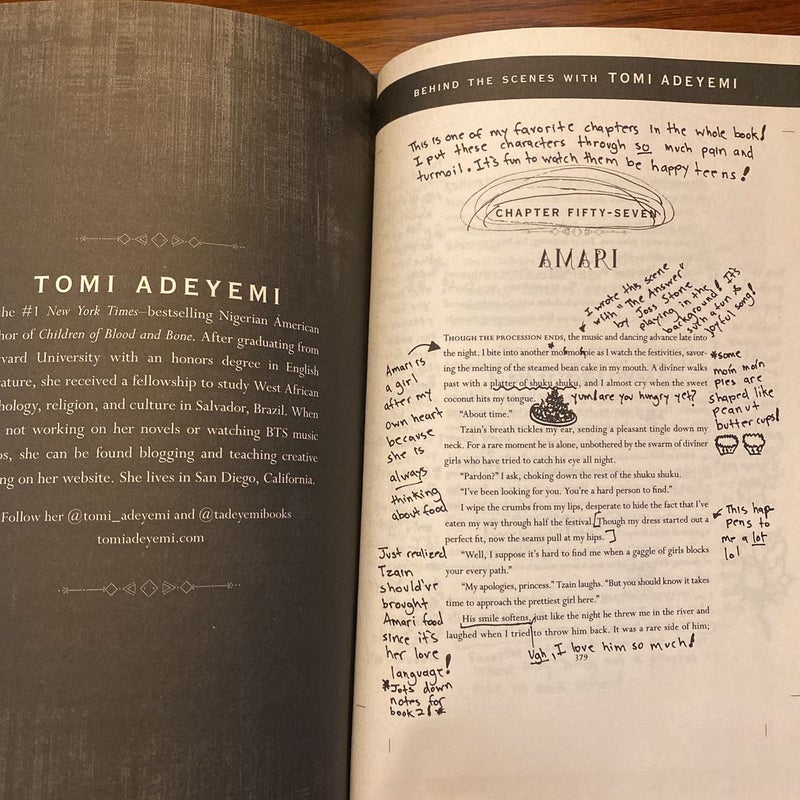 TOMI ADEYEMI
the #1 New York Times–bestselling Nigerian American
hor of Children of Blood and Bone. After graduating from
vard University with an honors degree in English
rature, she received a fellowship to study West African
hology, religion, and culture in Salvador, Brazil. When
not working on her novels or watching BTS music
os, she can be found blogging and teaching creative
ng on her website. She lives in San Diego, California.
Follow her @tomi_adeyemi and @tadeyemibooks
tomiadeyemi.com
BEHIND THE SCENES WITH TOMI ADEYEMI
This is one of my favorite chapters in the whole book!
I put these characters through so much pain and
turmoil. It's fun to watch them be happy teens!
CHAPTER FIFTY-SEVEN
AMARI
I wrote this scene
with "The Answer"
by Joss Stone
playing in the
background! It's
such a fun &
joyful song!
THOUGH THE PROCESSION ENDS, the music and dancing advance late into
the night. I bite into another moi moi pie as I watch the festivities, savor-
ing the melting of the steamed bean cake in my mouth. A divîner walks
past with a platter of shuku shuku, and I almost cry when the sweet
coconut hits my tongue.
yum! are you hungry yet?
"About time."
Tzain's breath tickles my ear, sending a pleasant tingle down my
neck. For a rare moment he is alone, unbothered by the swarm of divîner
girls who have tried to catch his eye all night.
"Pardon?" I ask, choking down the rest of the shuku shuku.
"I've been looking for you. You're a hard person to find."
I wipe the crumbs from my lips, desperate to hide the fact that I've
eaten my way through half the festival. [Though my dress started out a
perfect fit, now the seams pull at my hips.]
"Well, I suppose it's hard to find me when a gaggle of girls blocks
your every path."
"My apologies, princess." Tzain laughs. "But you should know it takes
time to approach the prettiest girl here."
His smile softens, just like the night he threw me in the river and
laughed when I tried to throw him back. It was a rare side of him;
Ugh, I love him so much!
379
Amari is
a girl
after my
own heart
because
she is
always
thinking
about food
Just realized
Tzain
should've
brought
Amari food
since it's
her love
language!
*Jots down
notes for
book 2!*
*some
moin moin
pies are
shaped like
peanut
butter cups!
This hap
pens to
me a lot
lol